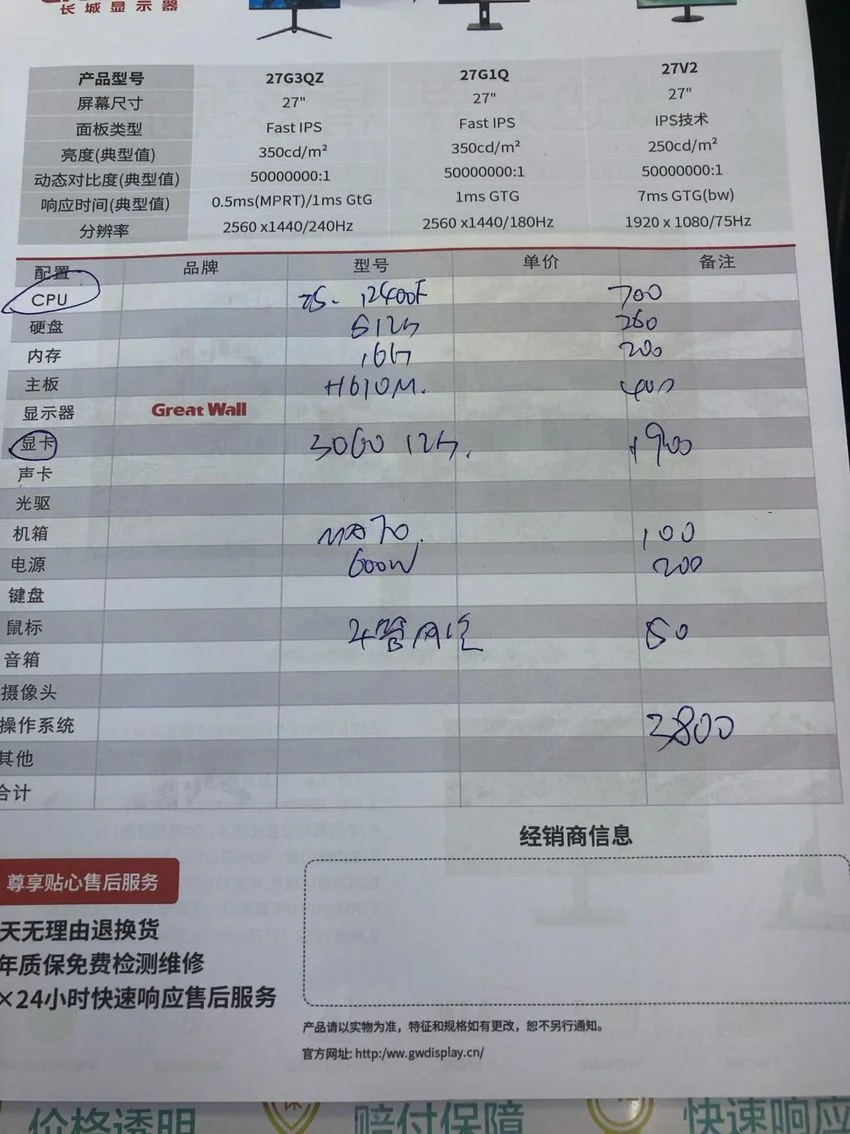 长城显示器
产品型号 27G3QZ 27G1Q 27V2
屏幕尺寸 27" 27" 27"
面板类型 Fast IPS Fast IPS IPS技术
亮度(典型值) 350cd/m² 350cd/m² 250cd/m²
动态对比度(典型值) 50000000:1 50000000:1 50000000:1
响应时间(典型值) 0.5ms(MPRT)/1ms GtG 1ms GTG 7ms GTG(bw)
分辨率 2560 x1440/240Hz 2560 x1440/180Hz 1920 x 1080/75Hz
配置 品牌 型号 单价 备注
CPU i5- 12400F 700
硬盘 512G 250
内存 16G 200
主板 H610M. 400
显示器 Great Wall
显卡 3060 12G. 1900
声卡
光驱
机箱 100
电源 600W 200
键盘
鼠标 4管风冷 50
音箱
摄像头
操作系统 3800
其他
合计
经销商信息
尊享贴心售后服务
天无理由退换货
年质保免费检测维修
×24小时快速响应售后服务
产品请以实物为准，特征和规格如有更改，恕不另行通知。
官方网址: http:/ww.gwdisplay.cn/
价格透明 赔付保障 快速响应